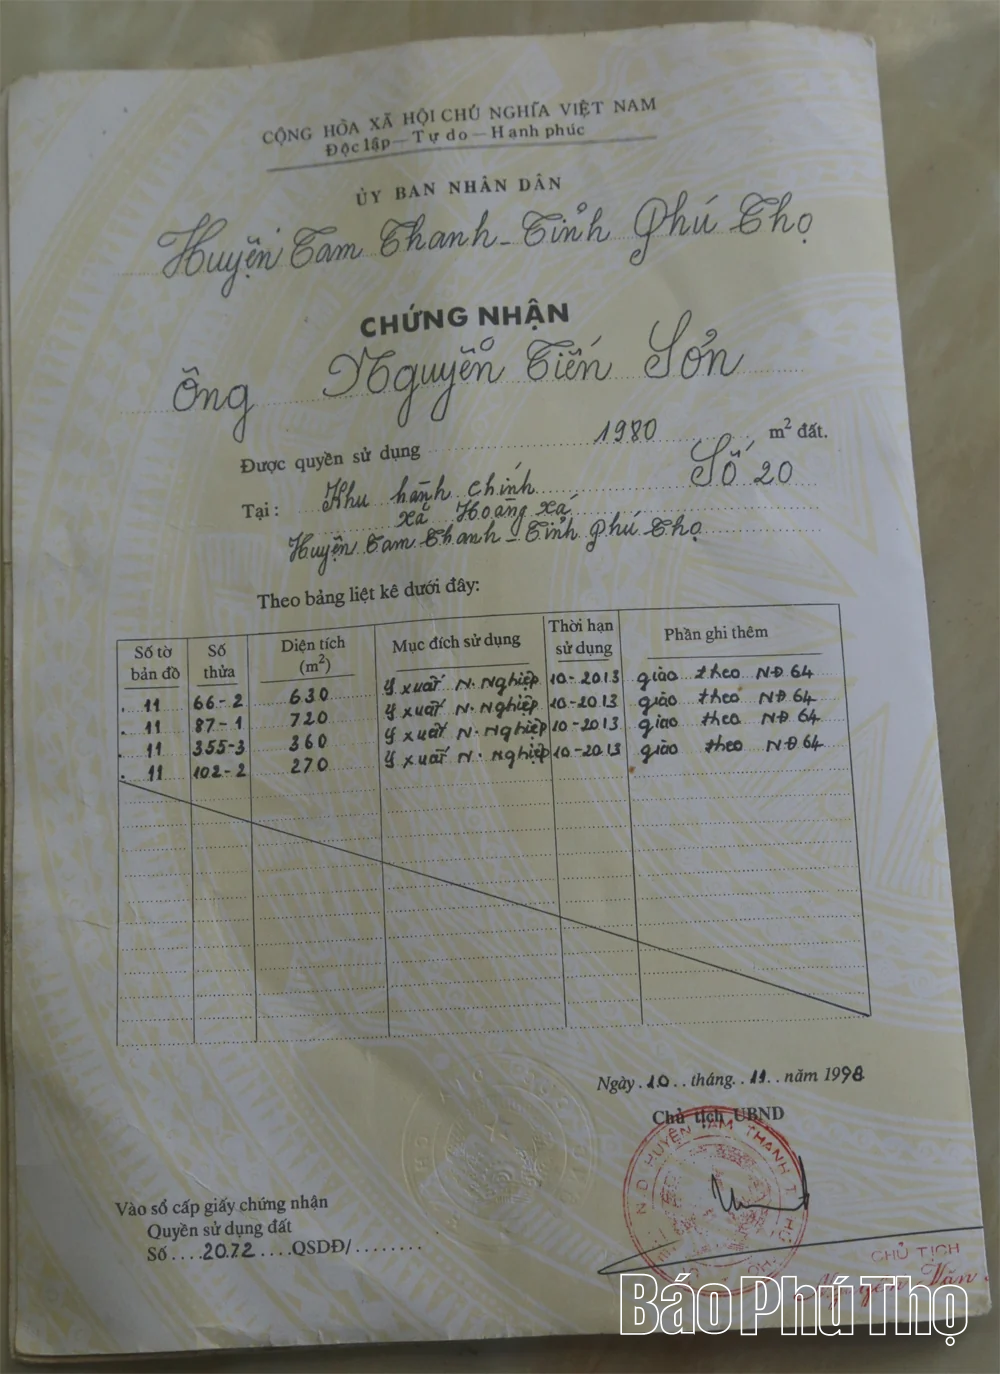 CỘNG HÒA XÃ HỘI CHỦ NGHĨA VIỆT NAM
Độc lập — Tự do — Hạnh phúc
ỦY BAN NHÂN DÂN
Huyện Tam Thanh - Tỉnh Phú Thọ
CHỨNG NHẬN
Ông Nguyễn Tiến Sơn
Được quyền sử dụng 1980 m² đất.
Tại: Khu hành chính Số 20
Xã Hoàng Xá
Huyện Tam Thanh - Tỉnh Phú Thọ
Theo bảng liệt kê dưới đây:
Số tờ bản đồ Số thửa Diện tích (m²) Mục đích sử dụng Thời hạn sử dụng Phần ghi thêm
11 66-2 630 xuất N. Nghiệp 10-2013 giao theo NĐ 64
11 87-1 720 xuất N. Nghiệp 10-2013 giao theo NĐ 64
11 355-3 360 xuất N. Nghiệp 10-2013 giao theo NĐ 64
11 102-2 270 xuất N. Nghiệp 10-2013 giao theo NĐ 64
Ngày 10 tháng 11 năm 1998
Chủ tịch UBND
N.D HUYỆN TAM THANH T.
Vào sổ cấp giấy chứng nhận
Quyền sử dụng đất
Số 2072 QSDĐ/
CHỦ TỊCH
Nguyễn Văn
Báo Phú Thọ